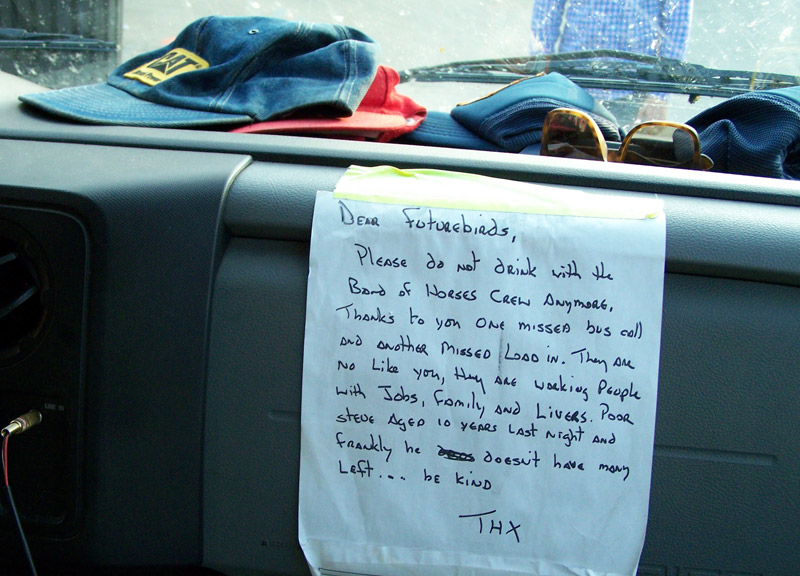 CAT
Dear Futurebirds,
Please do not drink with the
Band of Horses Crew Anymore.
Thanks to you one missed bus call
and another missed Load in. They are
no Like you, they are working People
with Jobs, Family and Livers. Poor
Steve Aged 10 years Last night and
frankly he doesn't have many
Left.... be kind
THX
LINE IN